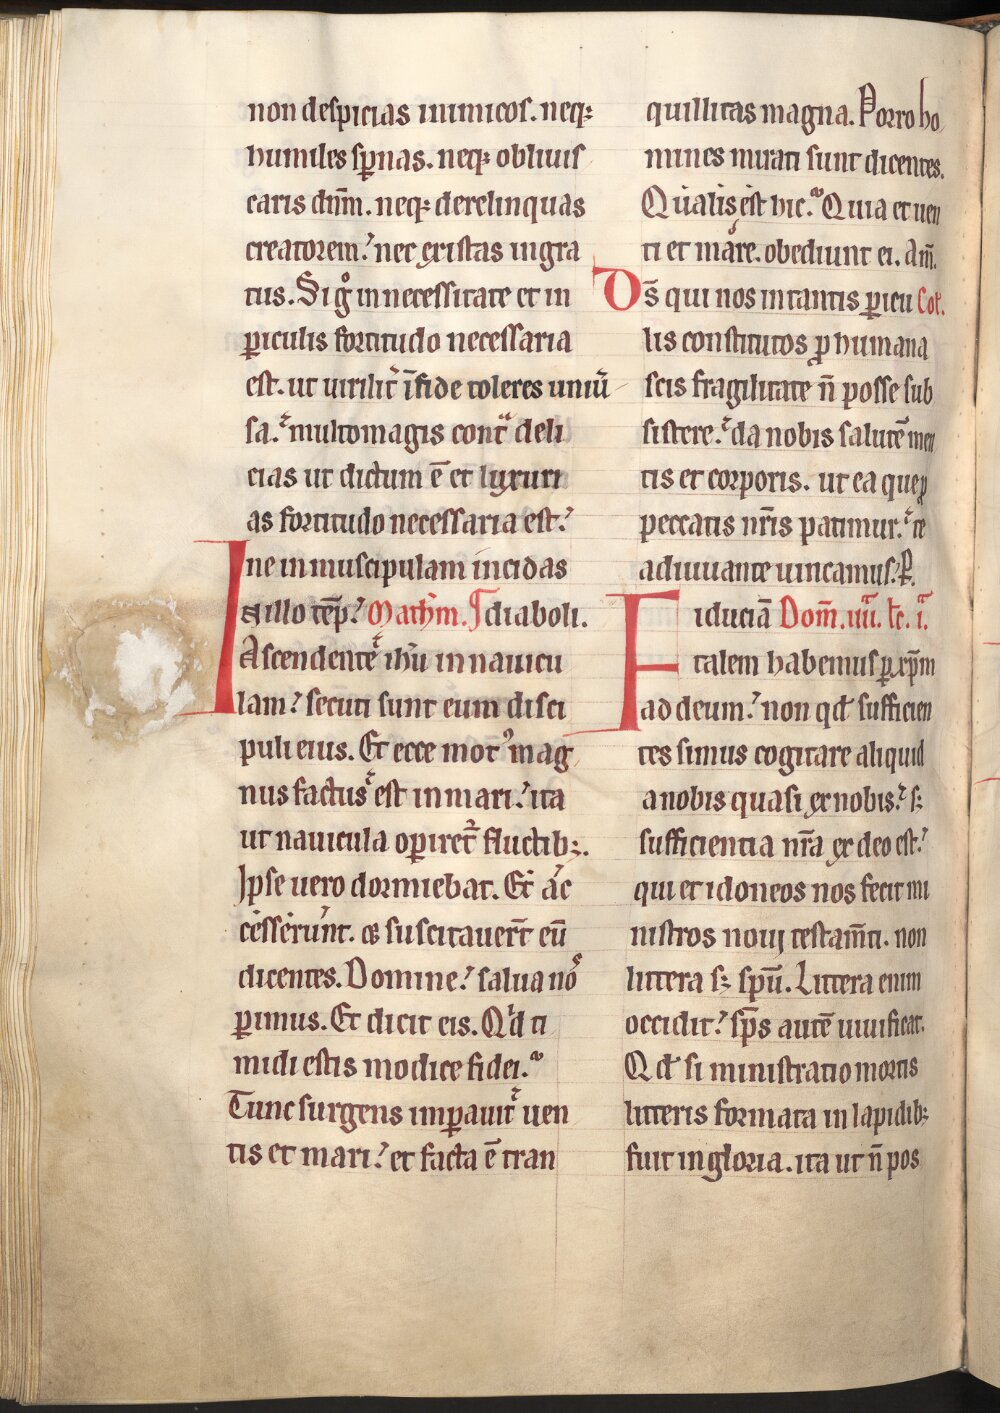 non despicias inimicos. neqꝫ
humiles ſp̱nas. neqꝫ obliuiſ
caris dnm̄. neqꝫ derelinquas
creatorem? nec exiſtas ingra
tus. Si gͦ in neceſſitate et in
ꝑiculis fortitudo neceſſaria
eſt. ut uirilit̄ ī fide toleres uniū
ſa. multomagis cont̄ deli
cias ut dictum ē et luxuri
as fortitudo neceſſaria eſt?
ne in muſcipulam incidas
In illo tēp? Mathm̄. ¶ diaboli.
Aſcendente ihū in nauicu
lam? ſecuti ſunt eum diſci
puli eius. Et ecce motꝰ mag
nus factus eſt in mari? ita
ut nauicula oꝑiret̄ fluctibꝫ.
Ipſe uero dormiebat. Et ac
ceſſerunt. et ſuſcitauer̄t eū
dicentes. Domine? ſalua noſ
ꝑimus. Et dicit eis. Qid ti
midi eſtis modice fidei.
Tunc ſurgens imꝑauit uen
tis et mari? et facta ē tran
quillitas magna. Porro ho
mines mirati ſunt dicentes.
Qualis eſt hic. Quia et uen
ti et mare. obediunt ei. Am̄.
Ds̄ qui nos in tantis ꝑicu Coł.
lis conſtitutos ꝓ humana
ſcis fragilitate n̄ poſſe ſub
ſiſtere. da nobis ſalutē men
tis et corporis. ut ea que ꝓ
peccatis nr̄is patimur. te
adiuuante uincamus. P̱.
Fiduciā Dom̄. iiii. łc. i.
talem habemus ꝑ xp̄m
ad deum? non qd̄ ſufficien
tes ſimus cogitare aliquid
a nobis quaſi ex nobis? ſꝫ
ſufficientia nr̄a ex deo eſt?
qui et idoneos nos fecit mi
niſtros noui teſtam̄ti. non
littera ſꝫ ſpū. Littera enim
occidit? ſp̄s autē uiuificat.
Qd̄ ſi miniſtratio mortis
litteris formata in lapidibꝫ
fuit in gloria. ita ut n̄ poſ